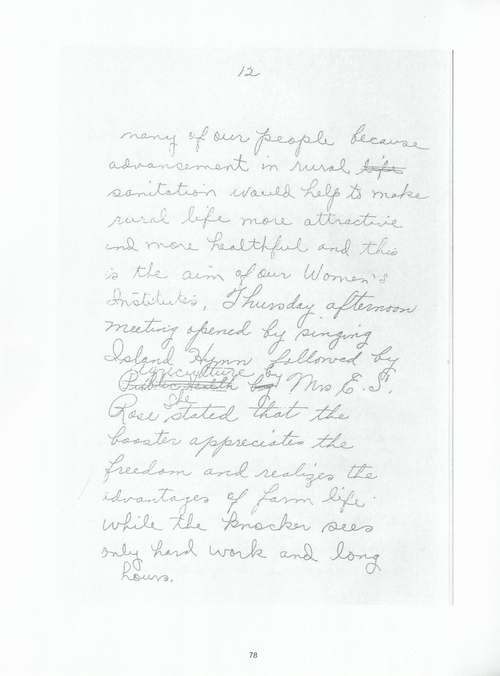 12
many of our people because
advancement in rural life
sanitation would help to make
rural life more attractive
and more healthful and this
is the aim of our Women's
Institutes, Thursday afternoon
meeting opened by singing
Island Hymn followed by
Agriculture by
Public Health by Mrs E. S.
She
Rose stated that the
booster appreciates the
freedom and realizes the
advantages of farm life
while the knocker sees
only hard work and long
hours.
78